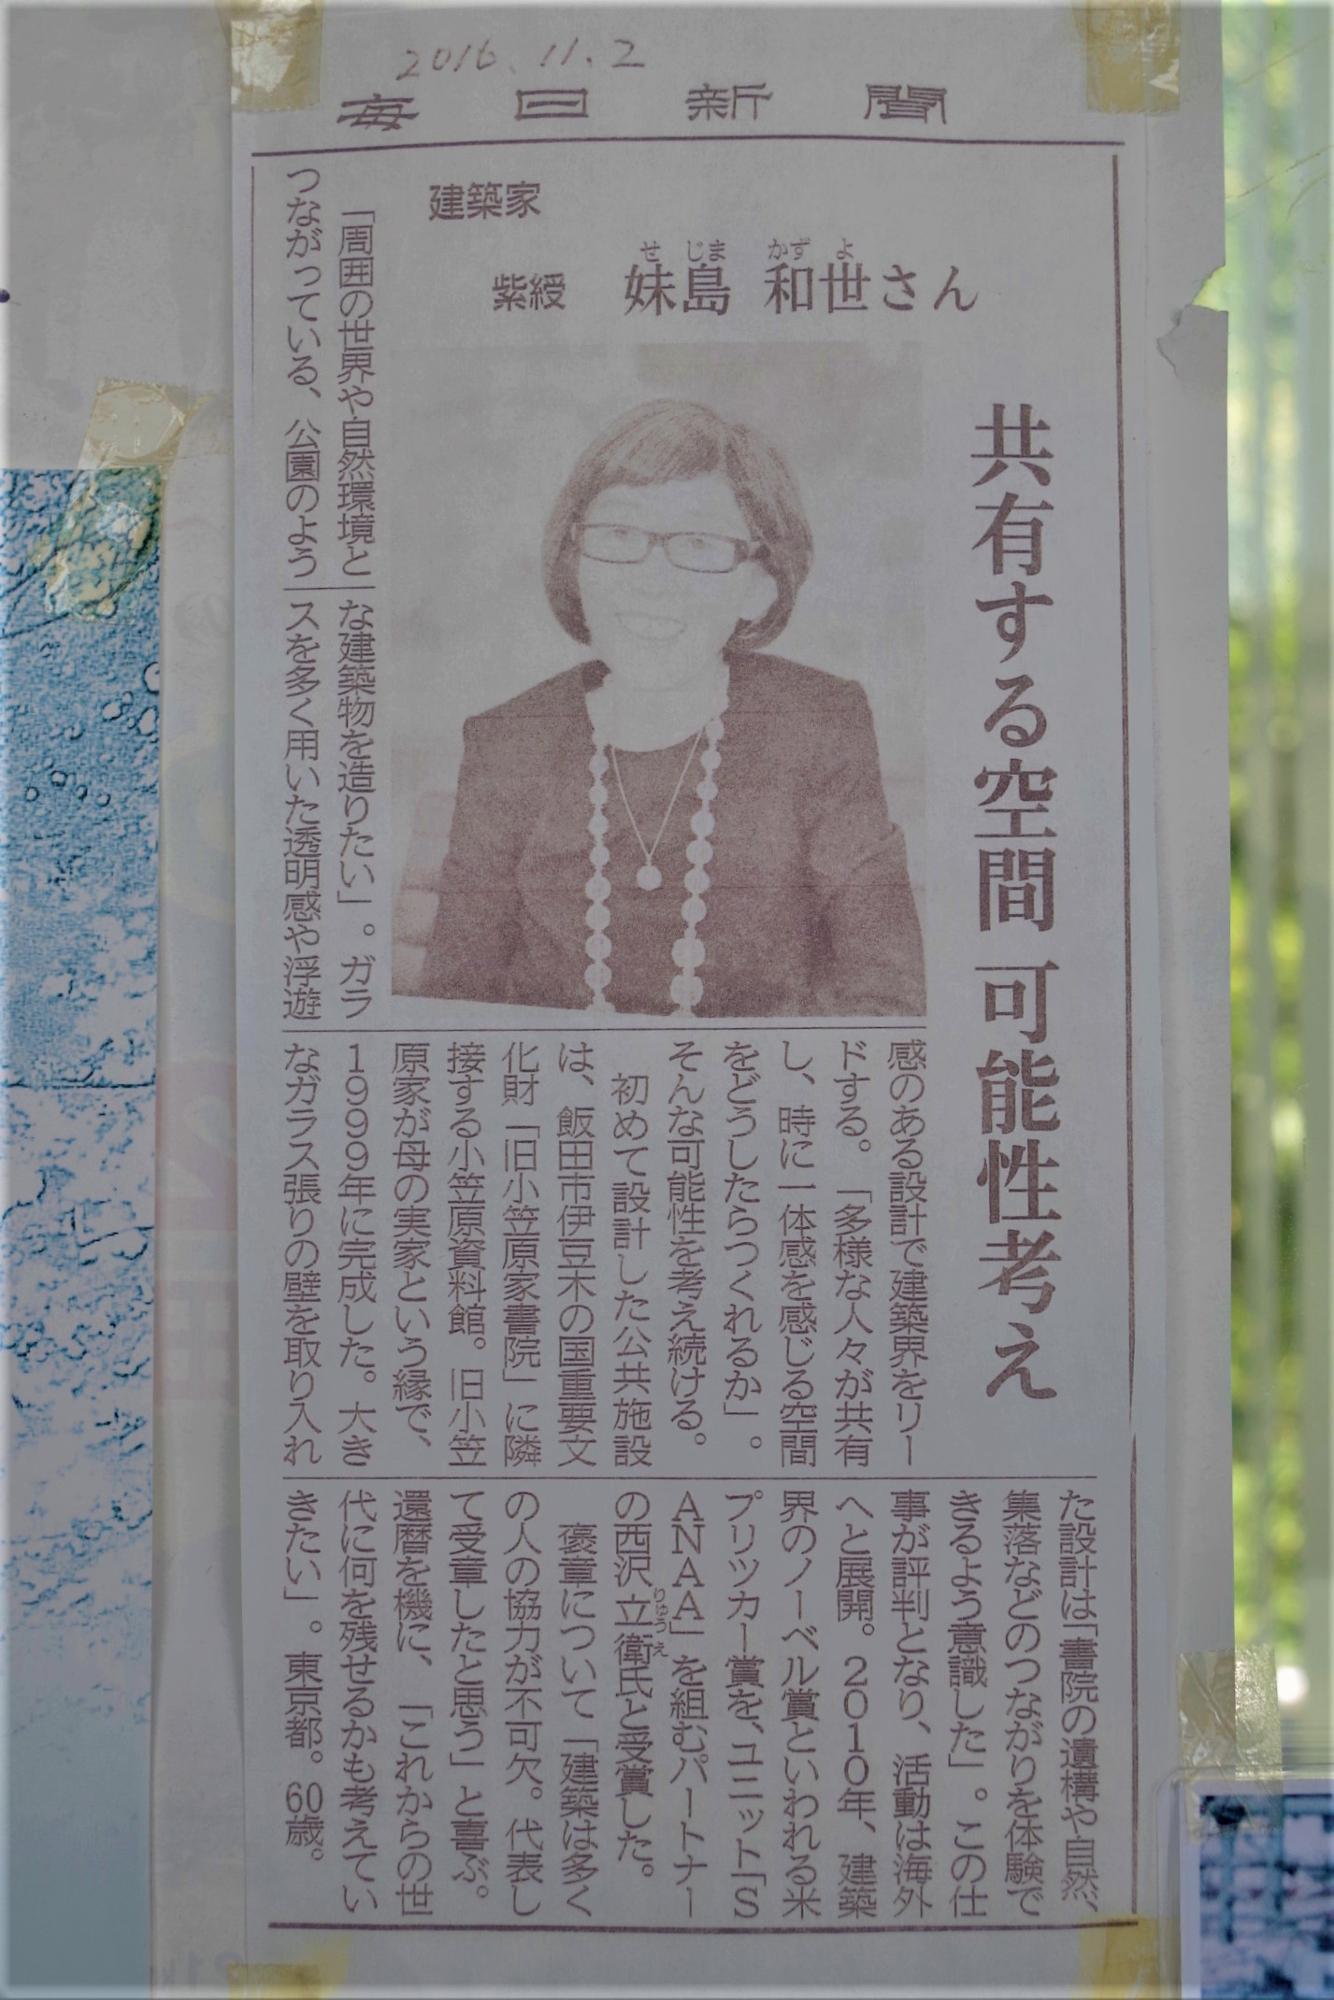 2016.11.2
毎日新聞
共有する空間 可能性考え
建築家
紫綬 妹島 和世さん
せ じま かず よ
「周囲の世界や自然環境と
つながっている、公園のよう
な建築物を造りたい」。ガラ
スを多く用いた透明感や浮遊
感のある設計で建築界をリー
ドする。「多様な人々が共有
し、時に一体感を感じる空間
をどうしたらつくれるか」。
そんな可能性を考え続ける。
初めて設計した公共施設
は、飯田市伊豆木の国重要文
化財「旧小笠原家書院」に隣
接する小笠原資料館。旧小笠
原家が母の実家という縁で、
1999年に完成した。大き
なガラス張りの壁を取り入れ
た設計は「書院の遺構や自然、
集落などのつながりを体験で
きるよう意識した」。この仕
事が評判となり、活動は海外
へと展開。2010年、建築
界のノーベル賞といわれる米
プリツカー賞を、ユニット「S
ANAA」を組むパートナー
の西沢立衛氏と受賞した。
りゅうえ
褒章について「建築は多く
の人の協力が不可欠。代表し
て受章したと思う」と喜ぶ。
還暦を機に、「これからの世
代に何を残せるかも考えてい
きたい」。東京都。60歳。